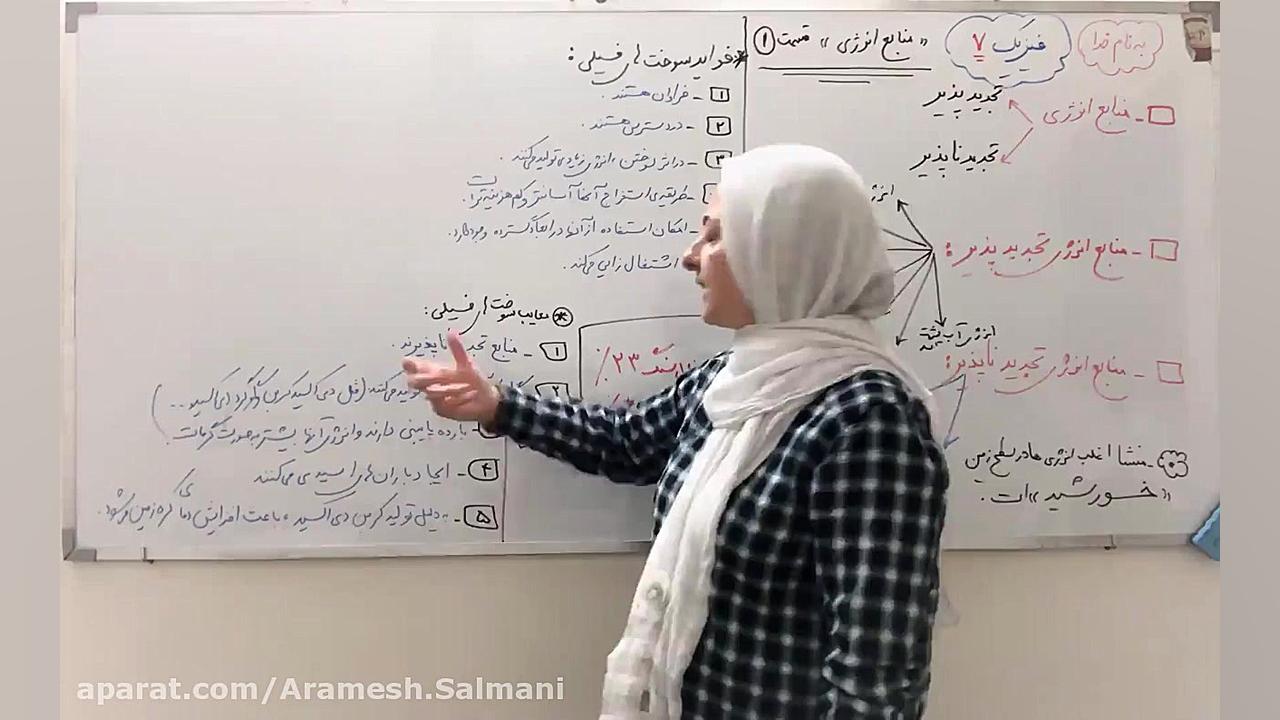 به نام خدا
فیزیک ۷
« منابع انرژی » قسمت ۱
- منابع انرژی
تجدید پذیر
تجدید ناپذیر
- منابع انرژی تجدید پذیر :
انرژی آب پشت سد
- منابع انرژی تجدید ناپذیر :
- منشا اغلب انرژی ها در سطح زمین
« خورشید » ی ات .
٪ ۲۳
* فواید سوخت های فسیلی :
۱ - فراوان هستند .
۲ - در دسترس هستند .
۳ - در اثر سوختن ، انرژی زیادی تولید می کنند .
- طریقه ی استخراج آنها آسانتر و کم هزینه تر است .
- امکان استفاده از آن در ابعاد گسترده وجود دارد .
اشتغال زایی می کند .
* معایب سوخت های فسیلی :
۱ - منابع تجدید ناپذیرند .
۲ تولید می کنند ( مثل دی اکسید کربن ، گوگرد دی اکسید ... )
بازده پایینی دارند و انرژی آنها بیشتر به صورت گرماست .
۴ - ایجاد باران های اسیدی می کنند
۵ - به دلیل تولید کربن دی اکسید ، باعث افزایش دمای کره زمین می شود .
aparat.com/Aramesh.Salmani